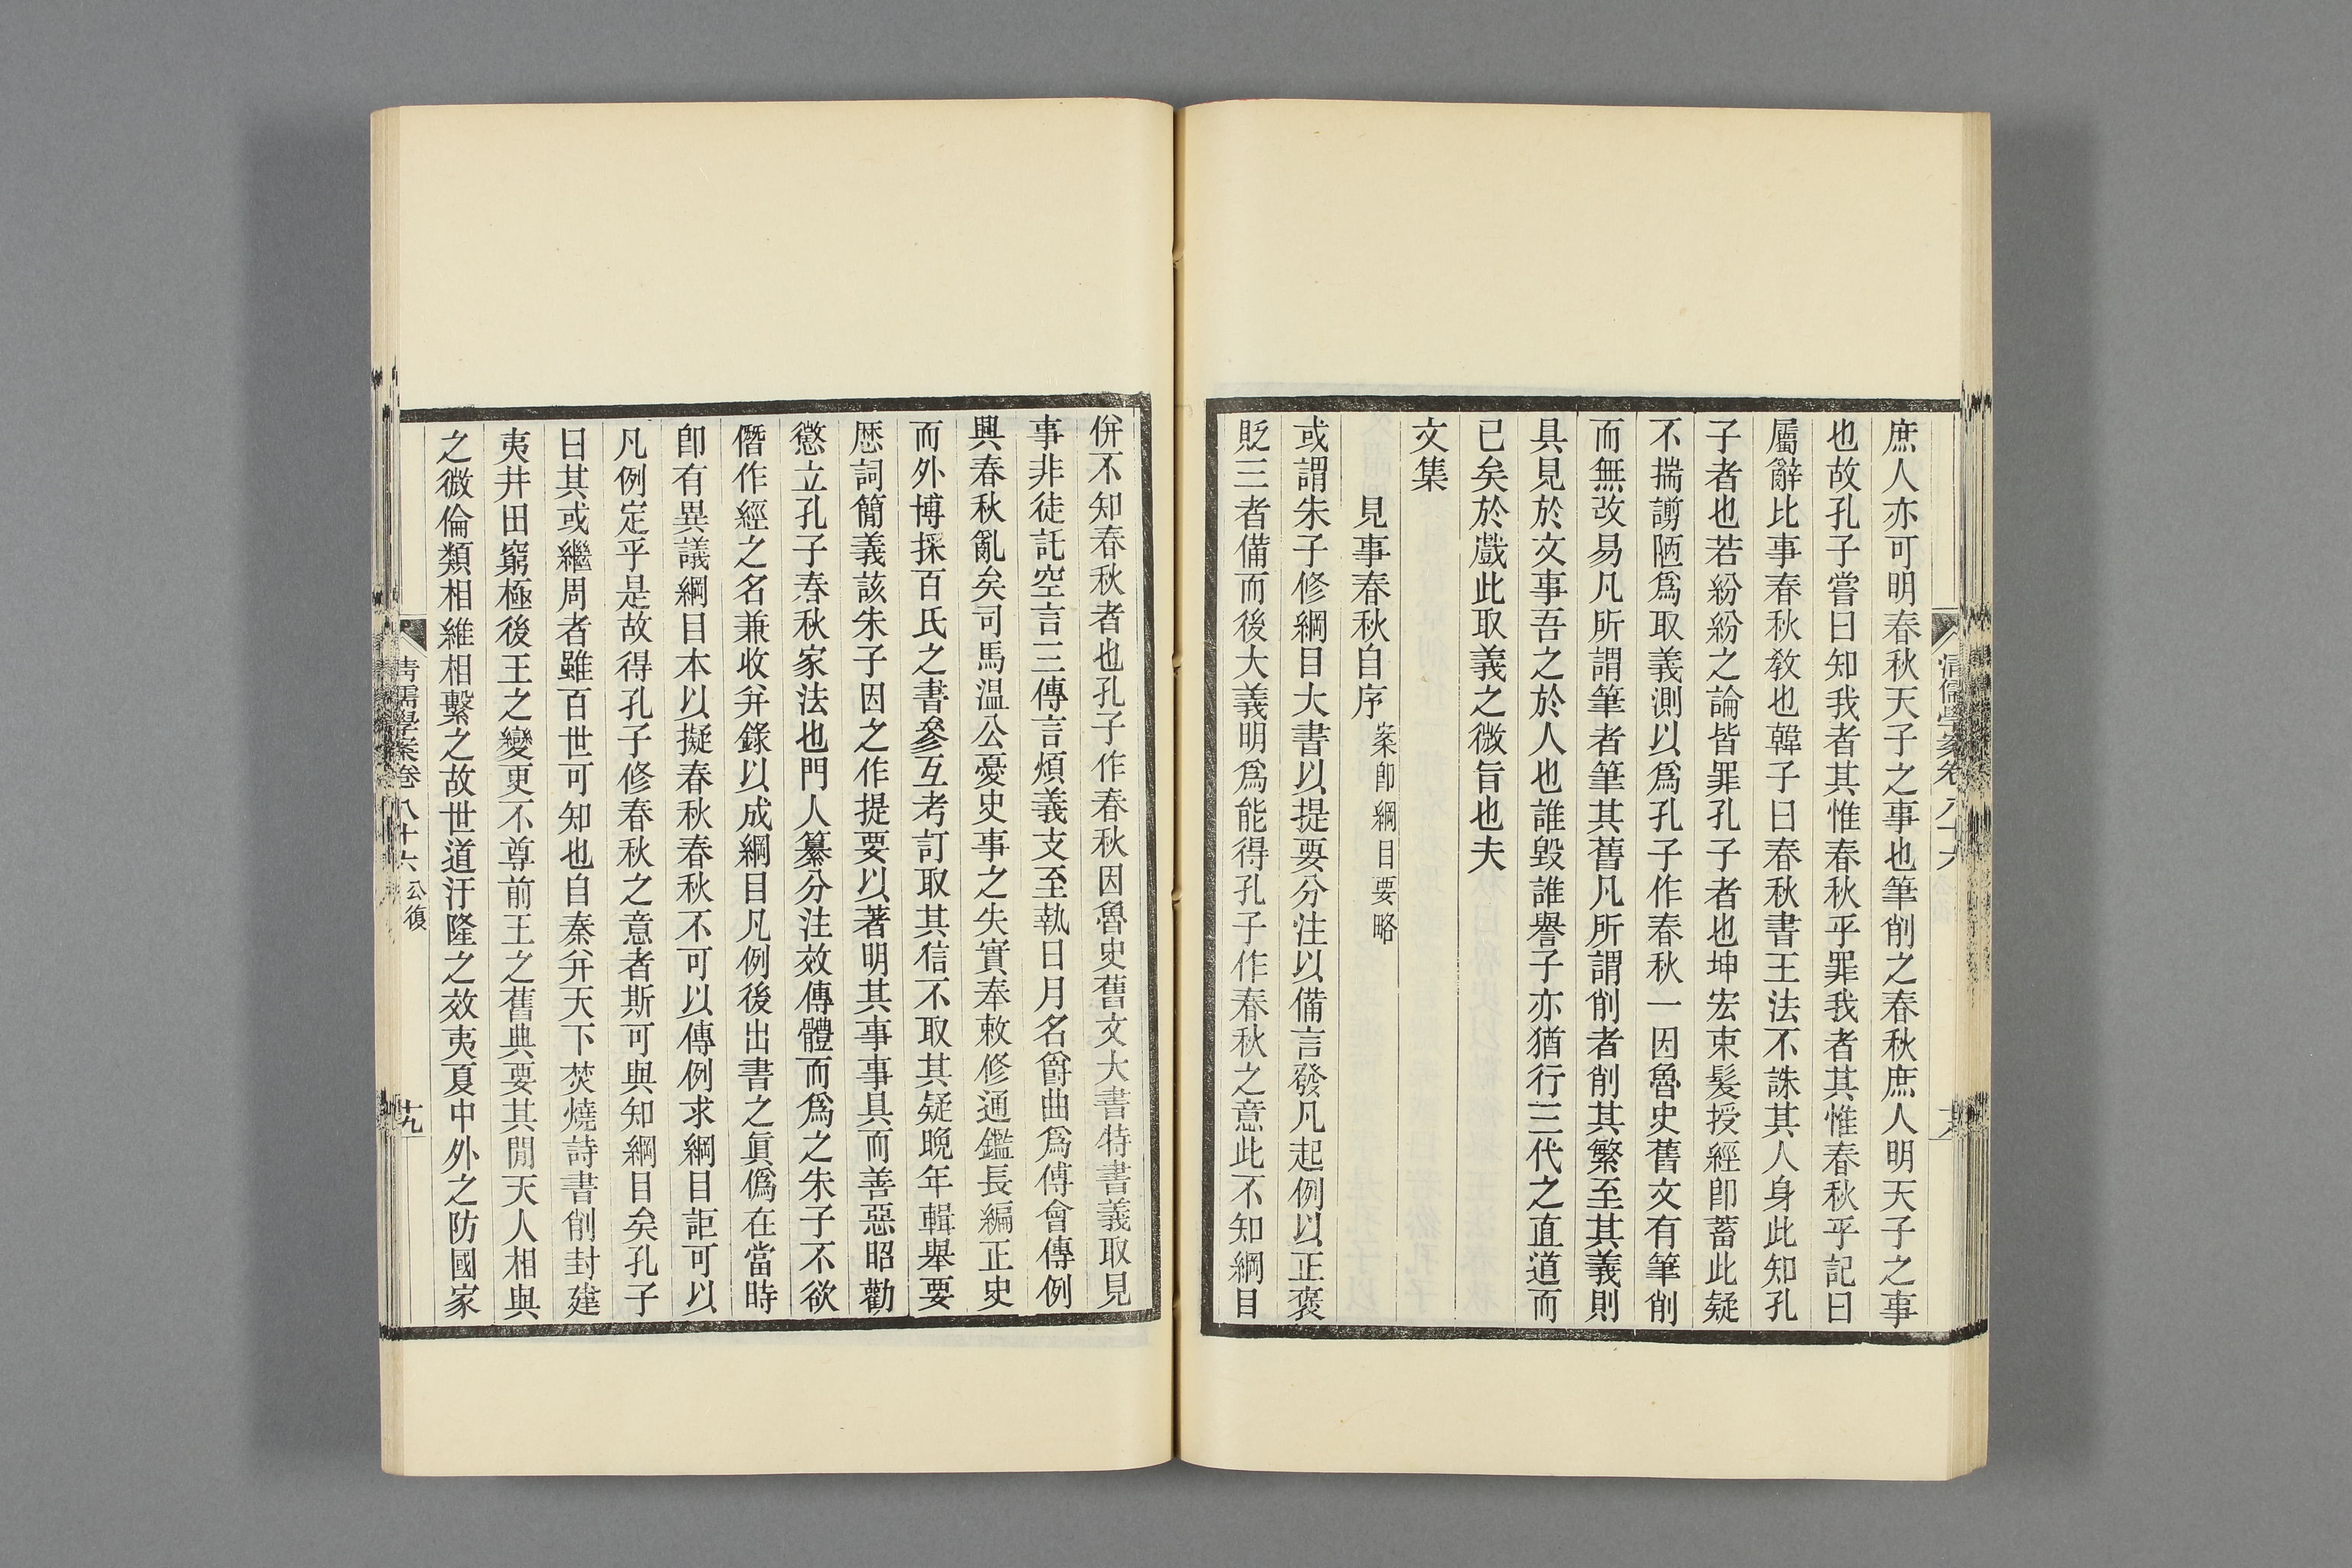 庶人亦可明春秋天子之事也筆削之春秋庶人明天子之事
也故孔子嘗曰知我者其惟春秋乎罪我者其惟春秋乎記曰
屬辭比事春秋敎也韓子曰春秋書王法不誅其人身此知孔
子者也若紛紛之論皆罪孔子者也坤宏束髮授經卽蓄此疑
不揣謭陋爲取義測以爲孔子作春秋一因魯史舊文有筆削
而無改易凡所謂筆者筆其舊凡所謂削者削其繁至其義則
具見於文事吾之於人也誰毀誰譽子亦猶行三代之直道而
已矣於戲此取義之微旨也夫
文集
見事春秋自序案卽綱目要略
或謂朱子修綱目大書以提要分注以備言發凡起例以正褒
貶三者備而後大義明爲能得孔子作春秋之意此不知綱目
倂不知春秋者也孔子作春秋因魯史舊文大書特書義取見
事非徒託空言三傳言煩義支至執日月名爵曲爲傅會傳例
興春秋亂矣司馬温公憂史事之失實奉敕修通鑑長編正史
而外博採百氏之書參互考訂取其信不取其疑晚年輯舉要
歷詞簡義該朱子因之作提要以著明其事事具而善惡昭勸
懲立孔子春秋家法也門人纂分注效傳體而爲之朱子不欲
僭作經之名兼收幷錄以成綱目凡例後出書之眞僞在當時
卽有異議綱目本以擬春秋春秋不可以傳例求綱目詎可以
凡例定乎是故得孔子修春秋之意者斯可與知綱目矣孔子
曰其或繼周者雖百世可知也自秦幷天下焚燒詩書削封建
夷井田窮極後王之變更不尊前王之舊典要其閒天人相與
之微倫類相維相繫之故世道汙隆之效夷夏中外之防國家
清儒學案卷八十六 公復
十九